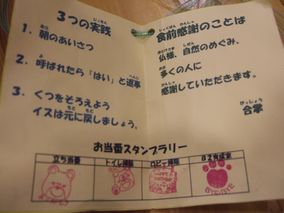 ３つの実践
１．朝のあいさつ
２．呼ばれたら「はい」と返事
３．くつをそろえよう
イスは元に戻しましょう。
食前感謝のことば
仏様、自然のめぐみ、
多くの人に
感謝していただきます。
合掌
お当番スタンプラリー
立ち当番
トイレ掃除
ロビー掃除